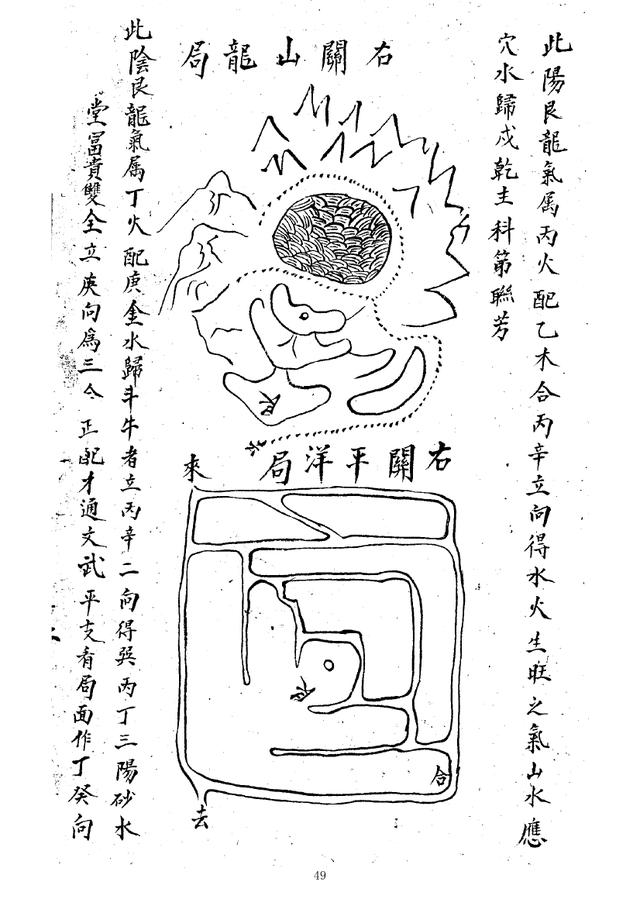 此陽艮龍氣属丙火配乙木合丙辛立向得水火生旺之氣山水應
穴水歸戍乾主科第聯芳
右關山龍局
艮
右關平洋局
來
艮
合
去
此陰艮龍氣属丁火配庚金水歸斗牛者立丙辛二向得巽丙丁三陽砂水
堂富貴雙全立庚向爲三合正配才通文武平支看局面作丁癸向
49